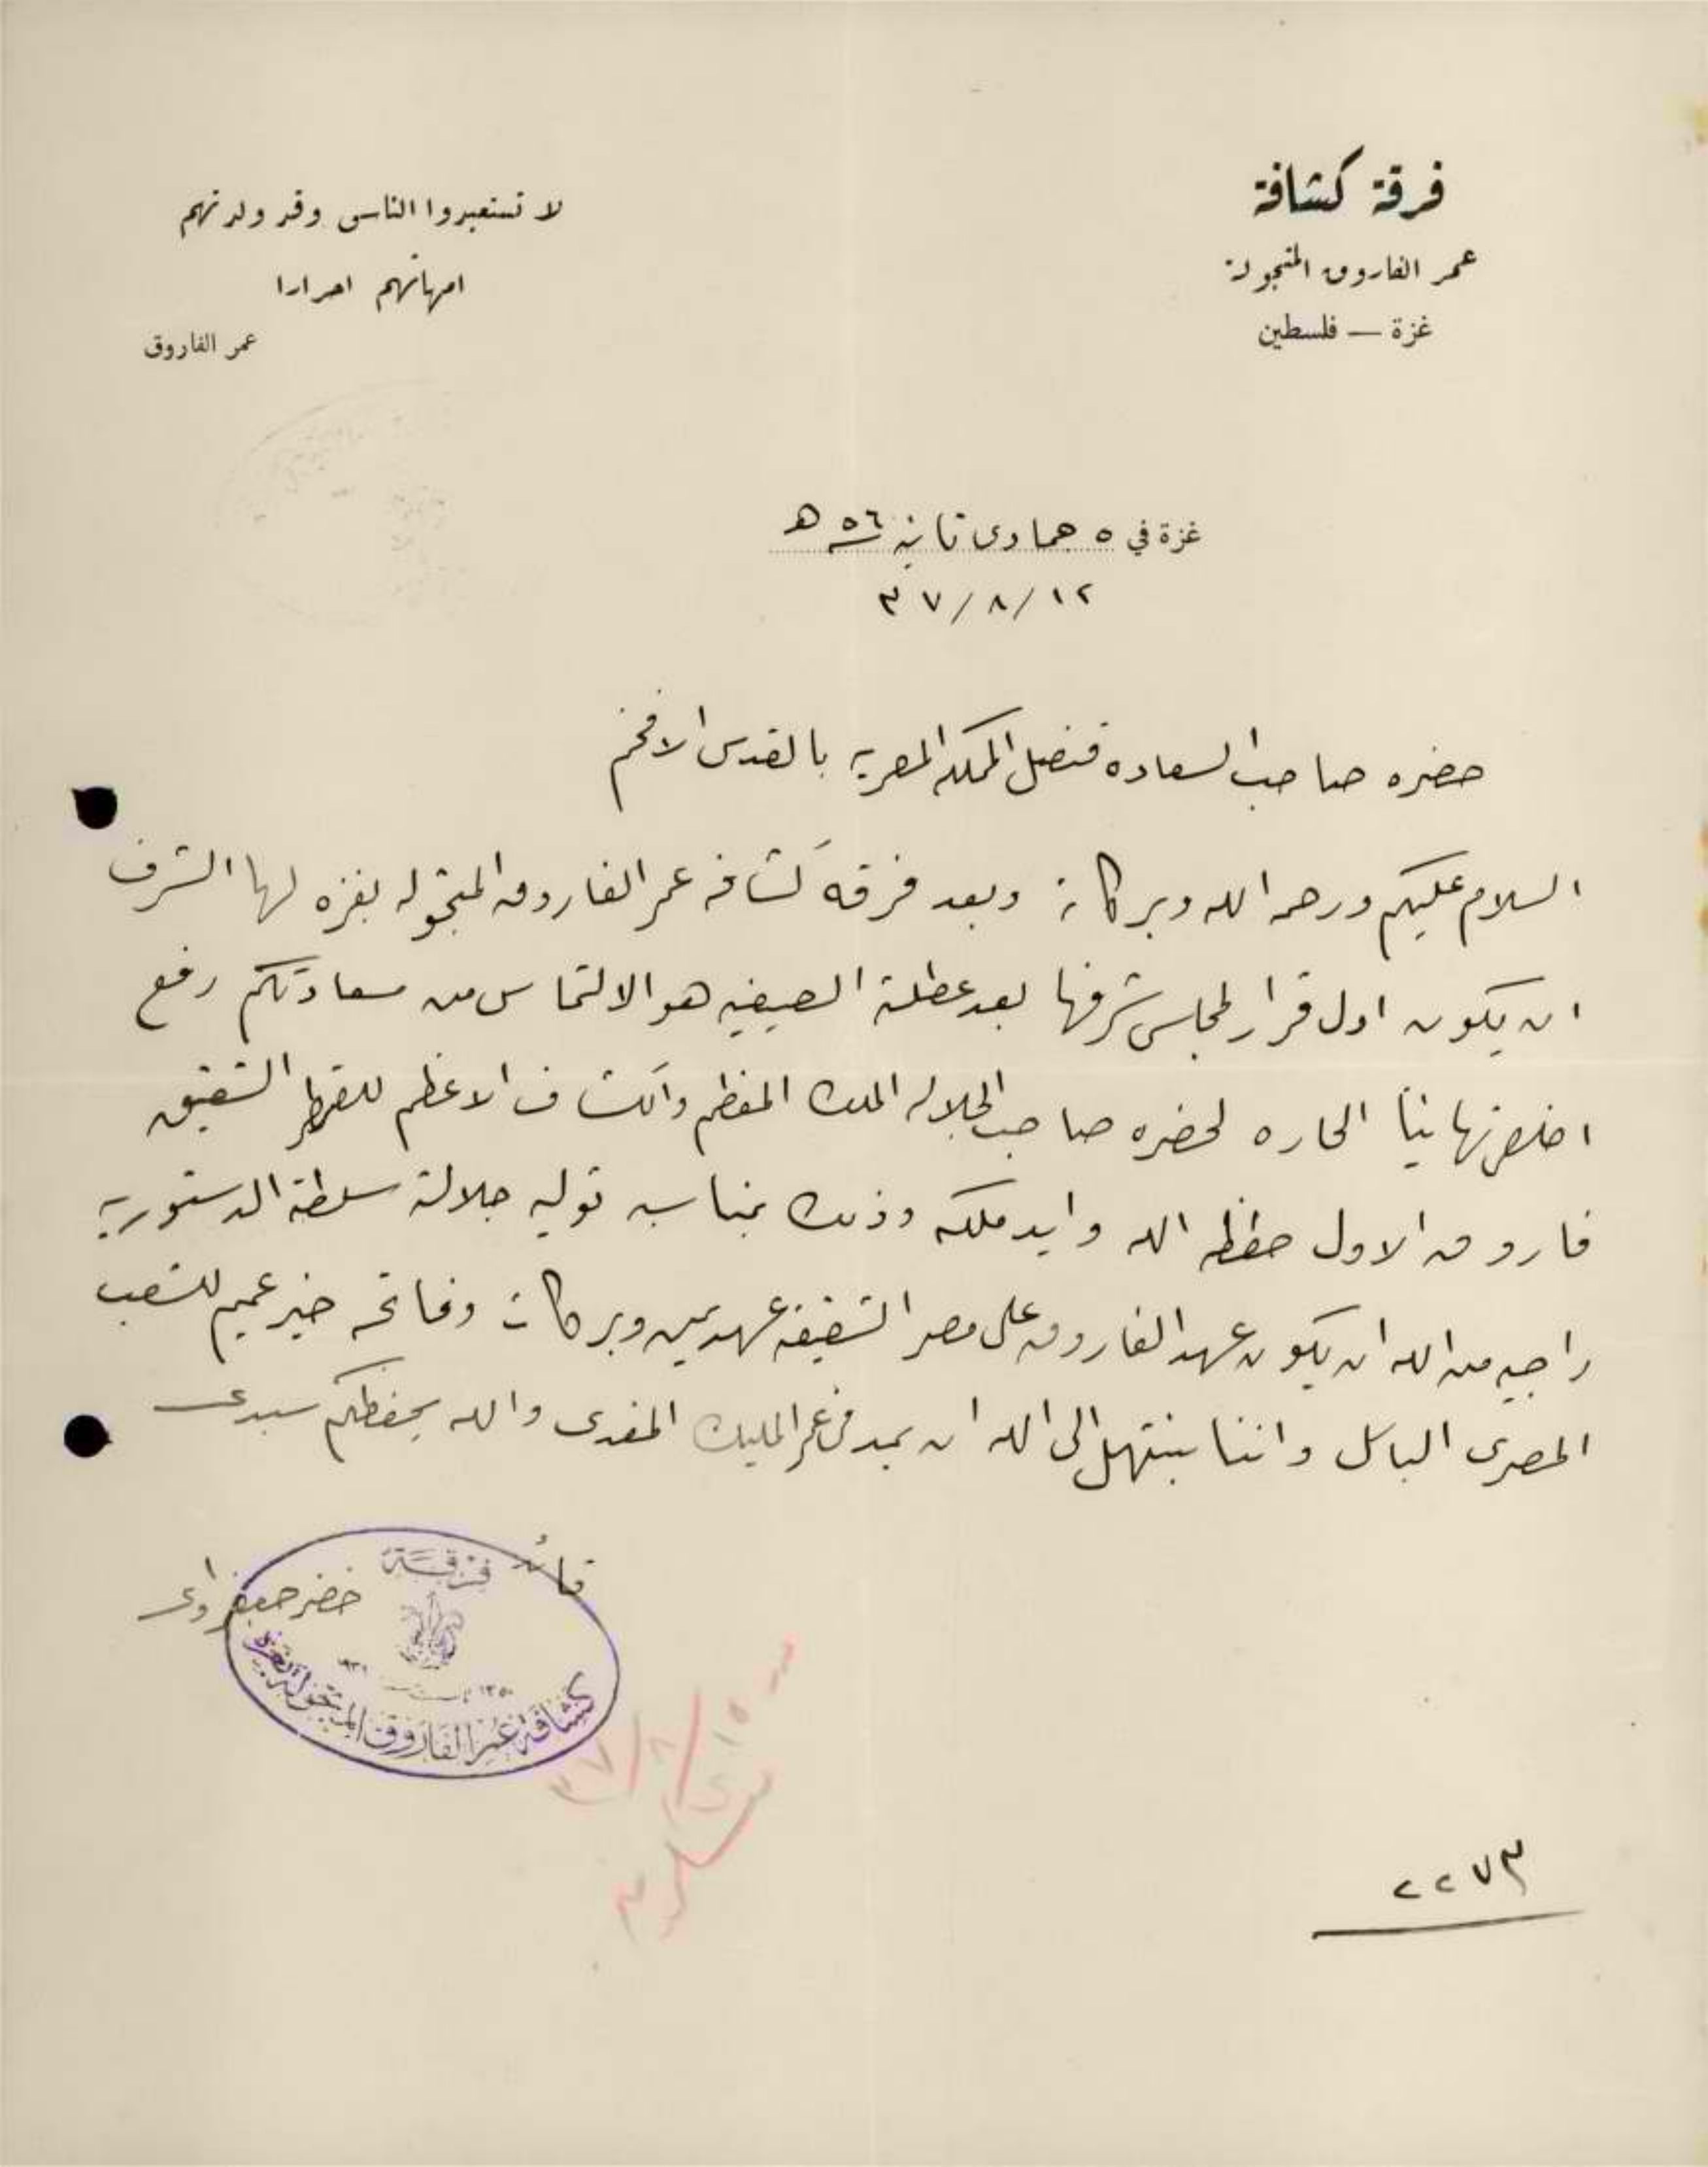 فرقة كشافة
عمر الفاروق المتجولة
غزة — فلسطين
لا تستعبدوا الناس وقد ولدتهم
امهاتهم احرارا
عمر الفاروق
غزة في ٥ جمادى ثانيه ٥٦ هـ
١٢/٨/٣٧
حضره صاحب السعاده قنصل المملكه المصريه بالقدس الافخم
السلام عليكم ورحمه الله وبركاته وبعد فرقه كشافه عمر الفاروق المتجوله بغزه لها الشرف
ان يكون اول قرار لمجلس شرفها بعد عطلة الصيفيه هو الالتماس من سعادتكم رفع
اخلص تهانينا الحاره لحضره صاحب الجلاله الملك المعظم والكشاف الاعظم للقطر الشقيق
فاروق الاول حفظه الله وايد ملكه وذلك بمناسبه توليه جلالة سلطة الدستوريه
راجيه من الله ان يكون عهد الفاروق على مصر الشقيقه عهد يمن وبركات وفاتحه خير عميم للشعب
المصرى الباسل واننا نبتهل الى الله ان يمد فى عمر المليك المفدى والله يحفظكم سيدى
قائد
خضر جعفراوى
فرقة
١٣٥٠ ١٩٣١
كشافة عمر الفاروق المتجولة بغزة
١٥/٨/٣٧
٢٢٧٣